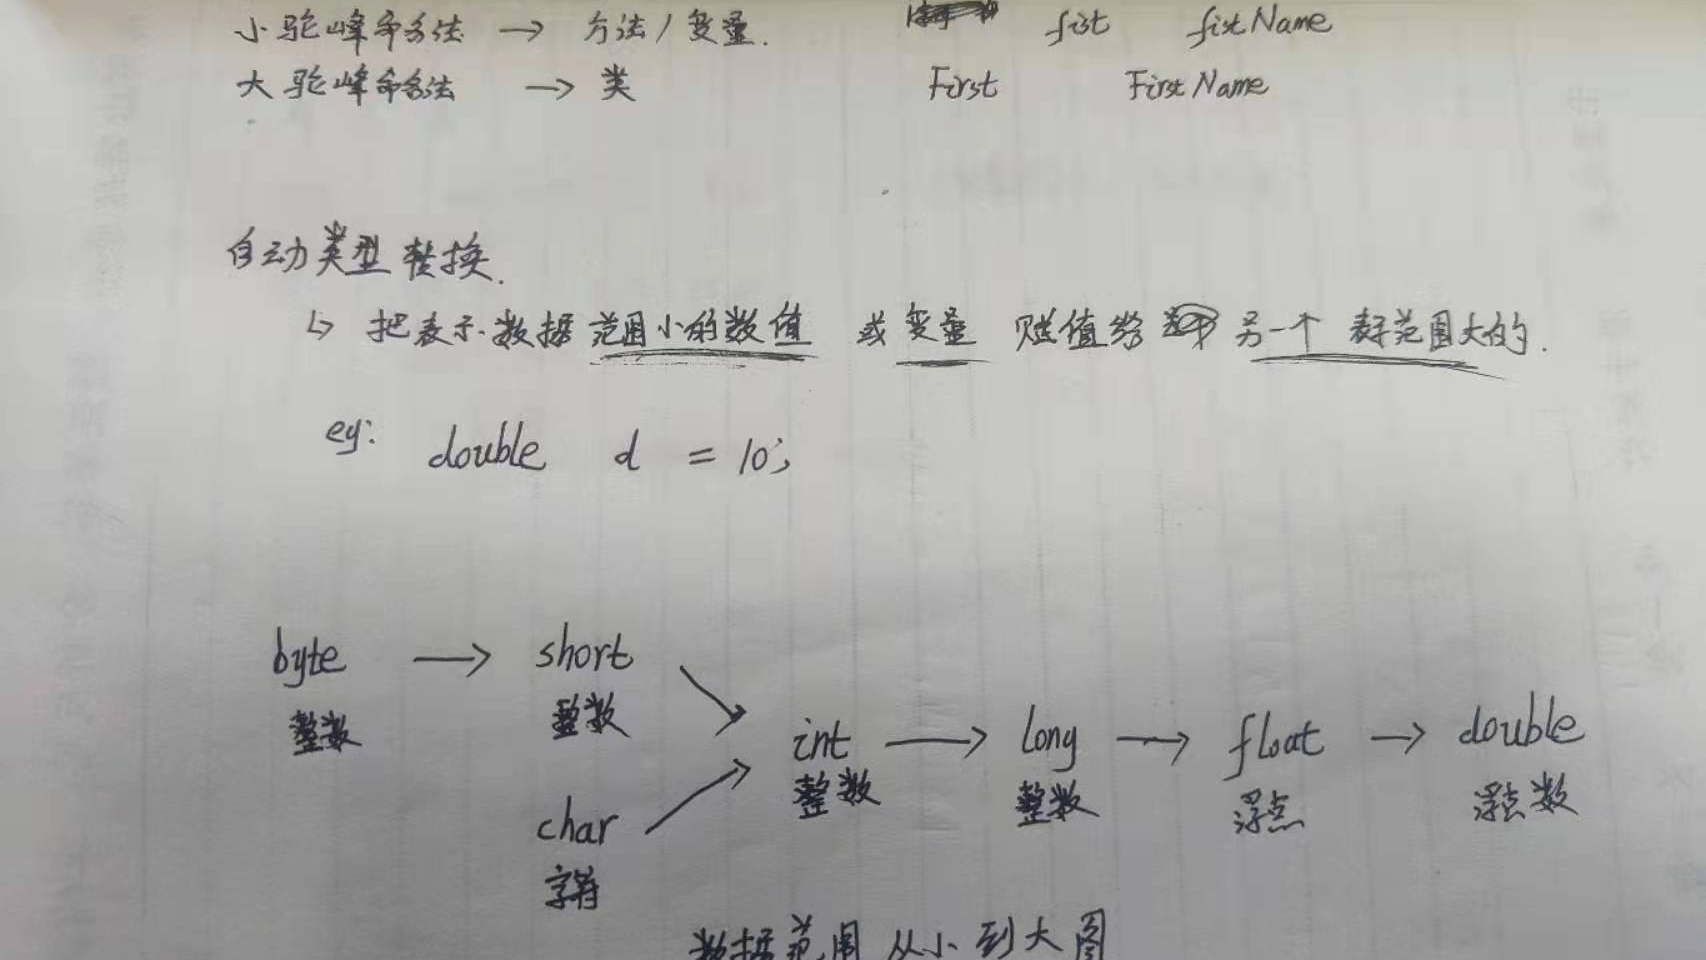 小驼峰命名法 → 方法/变量. fist fistName
大驼峰命名法 → 类 First FirstName
自动类型转换.
↳ 把表示数据范围小的数值 或变量 赋值给 另一个 表示范围大的.
eg: double d = 10;
byte → short
整数 整数
int → long → float → double
整数 整数 浮点 浮点数
char
字符
数据范围从小到大图